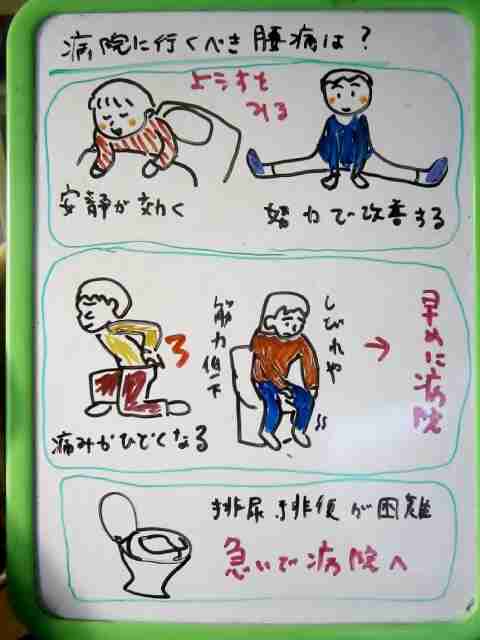 病院に行くべき腰痛は？
ようすを
みる
安静が効く
努力で改善する
痛みがひどくなる
筋力低下
しびれや
→ 早めに病院
排尿、排便が困難
急いで病院へ